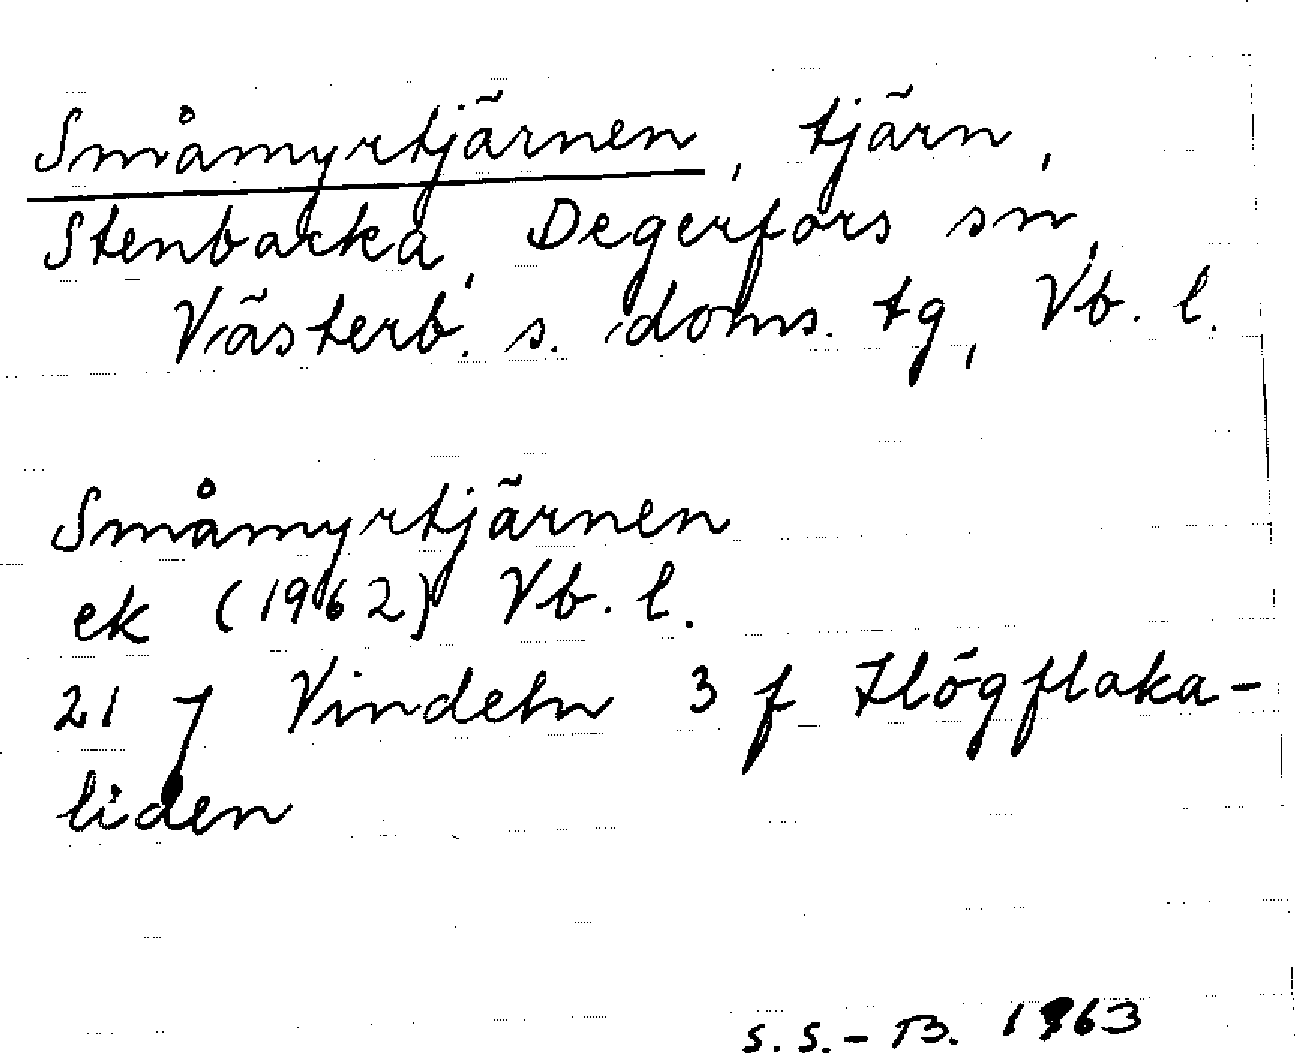 Småmyrtjärnen, tjärn,
Stenbacka, Degerfors sn,
Västerb. s. doms. tg, Vb. l.
Småmyrtjärnen
ek (1962) Vb. l.
21 J Vindeln 3 f Högflaka-
liden
S.S.-B. 1963